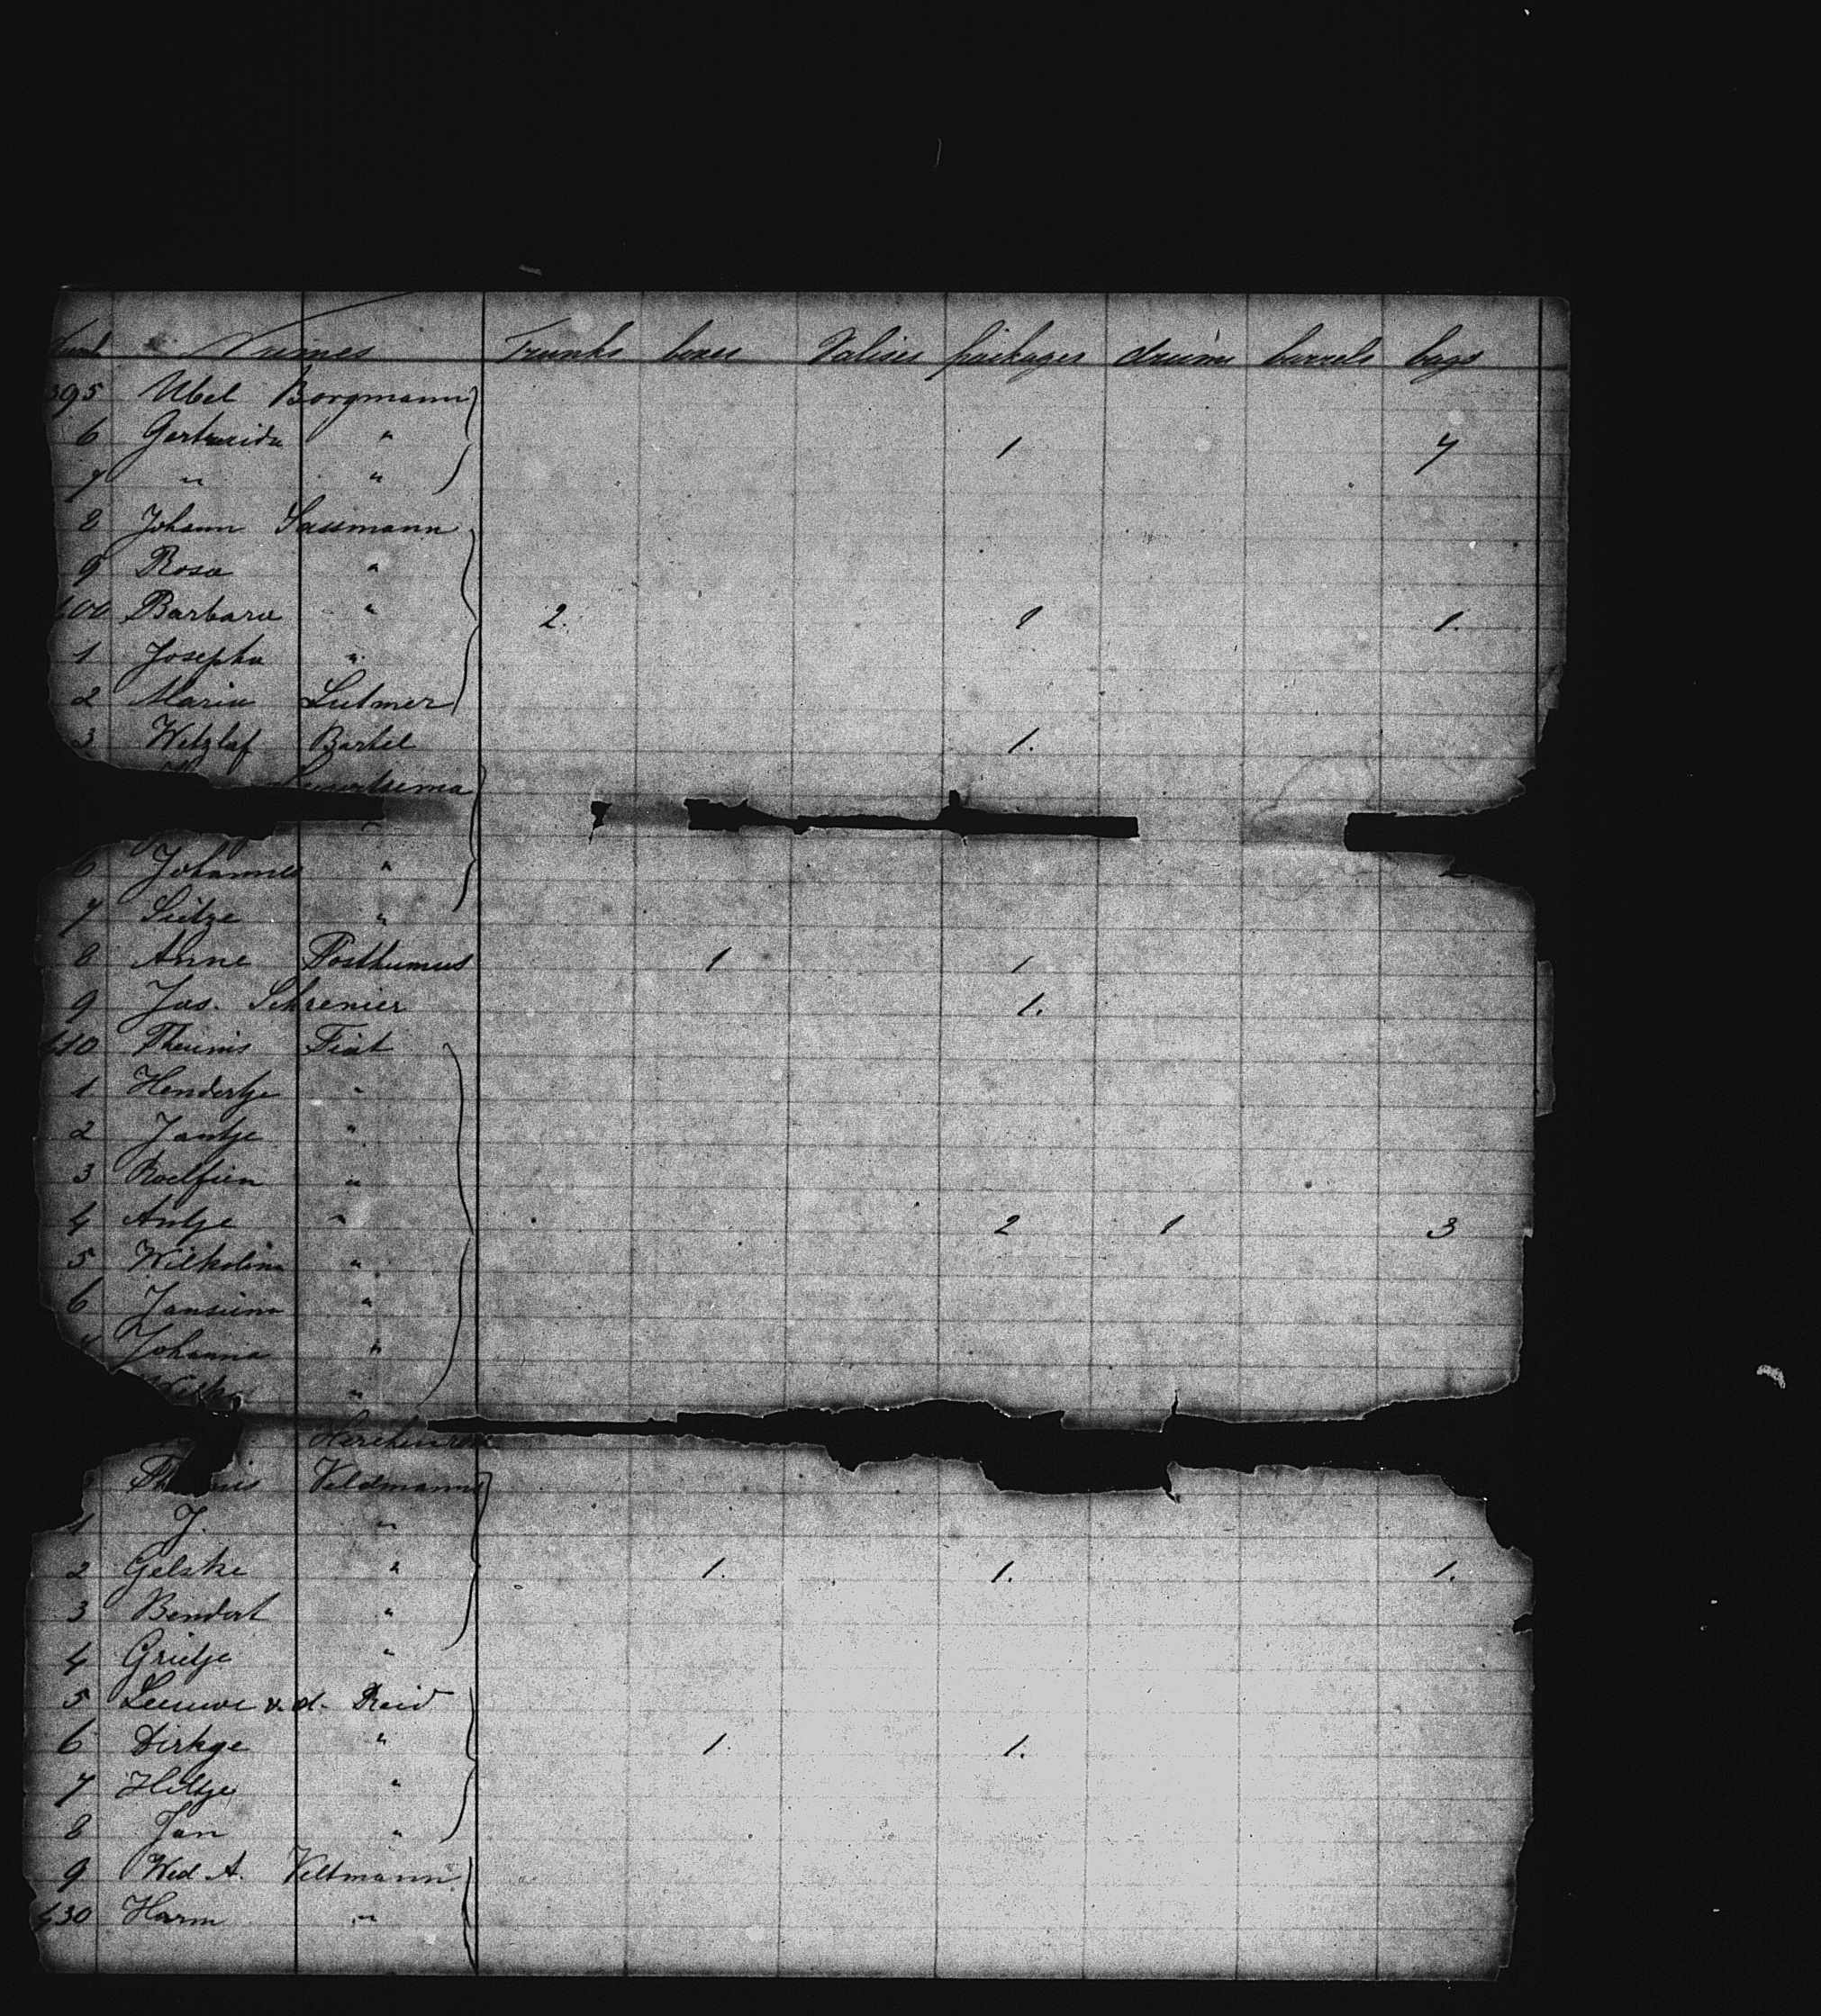 Names Trunks boxes Valises packages drums barrels bags
395 Ubel Borgmann
6 " 1 7
7 " "
8 Johann Sassmann
9 Rosa "
400 Barbara " 2. 1 1.
1 Josepha "
2 Maria Lutmer
3 Wetzlaf Bartel 1.
"
6 Johannes "
7 Sietze "
8 Anne Posthumus 1 1
9 Jos. Schrenier 1.
410 Theunis Fiat
1 Hendertje "
2 Jantje "
3 Roelfien "
4 Antje " 2 1 3
5 "
6 "
7 Johanna "
"
Veldmann
1 J. "
2 Gelske " 1. 1. 1.
3 Bendert "
4 Grietje "
5 Leeuwe v. d. Reid
6 Dirkge " 1. 1.
7 Hiltje "
8 Jan "
9 Wed A. Veltmann
430 Harm "